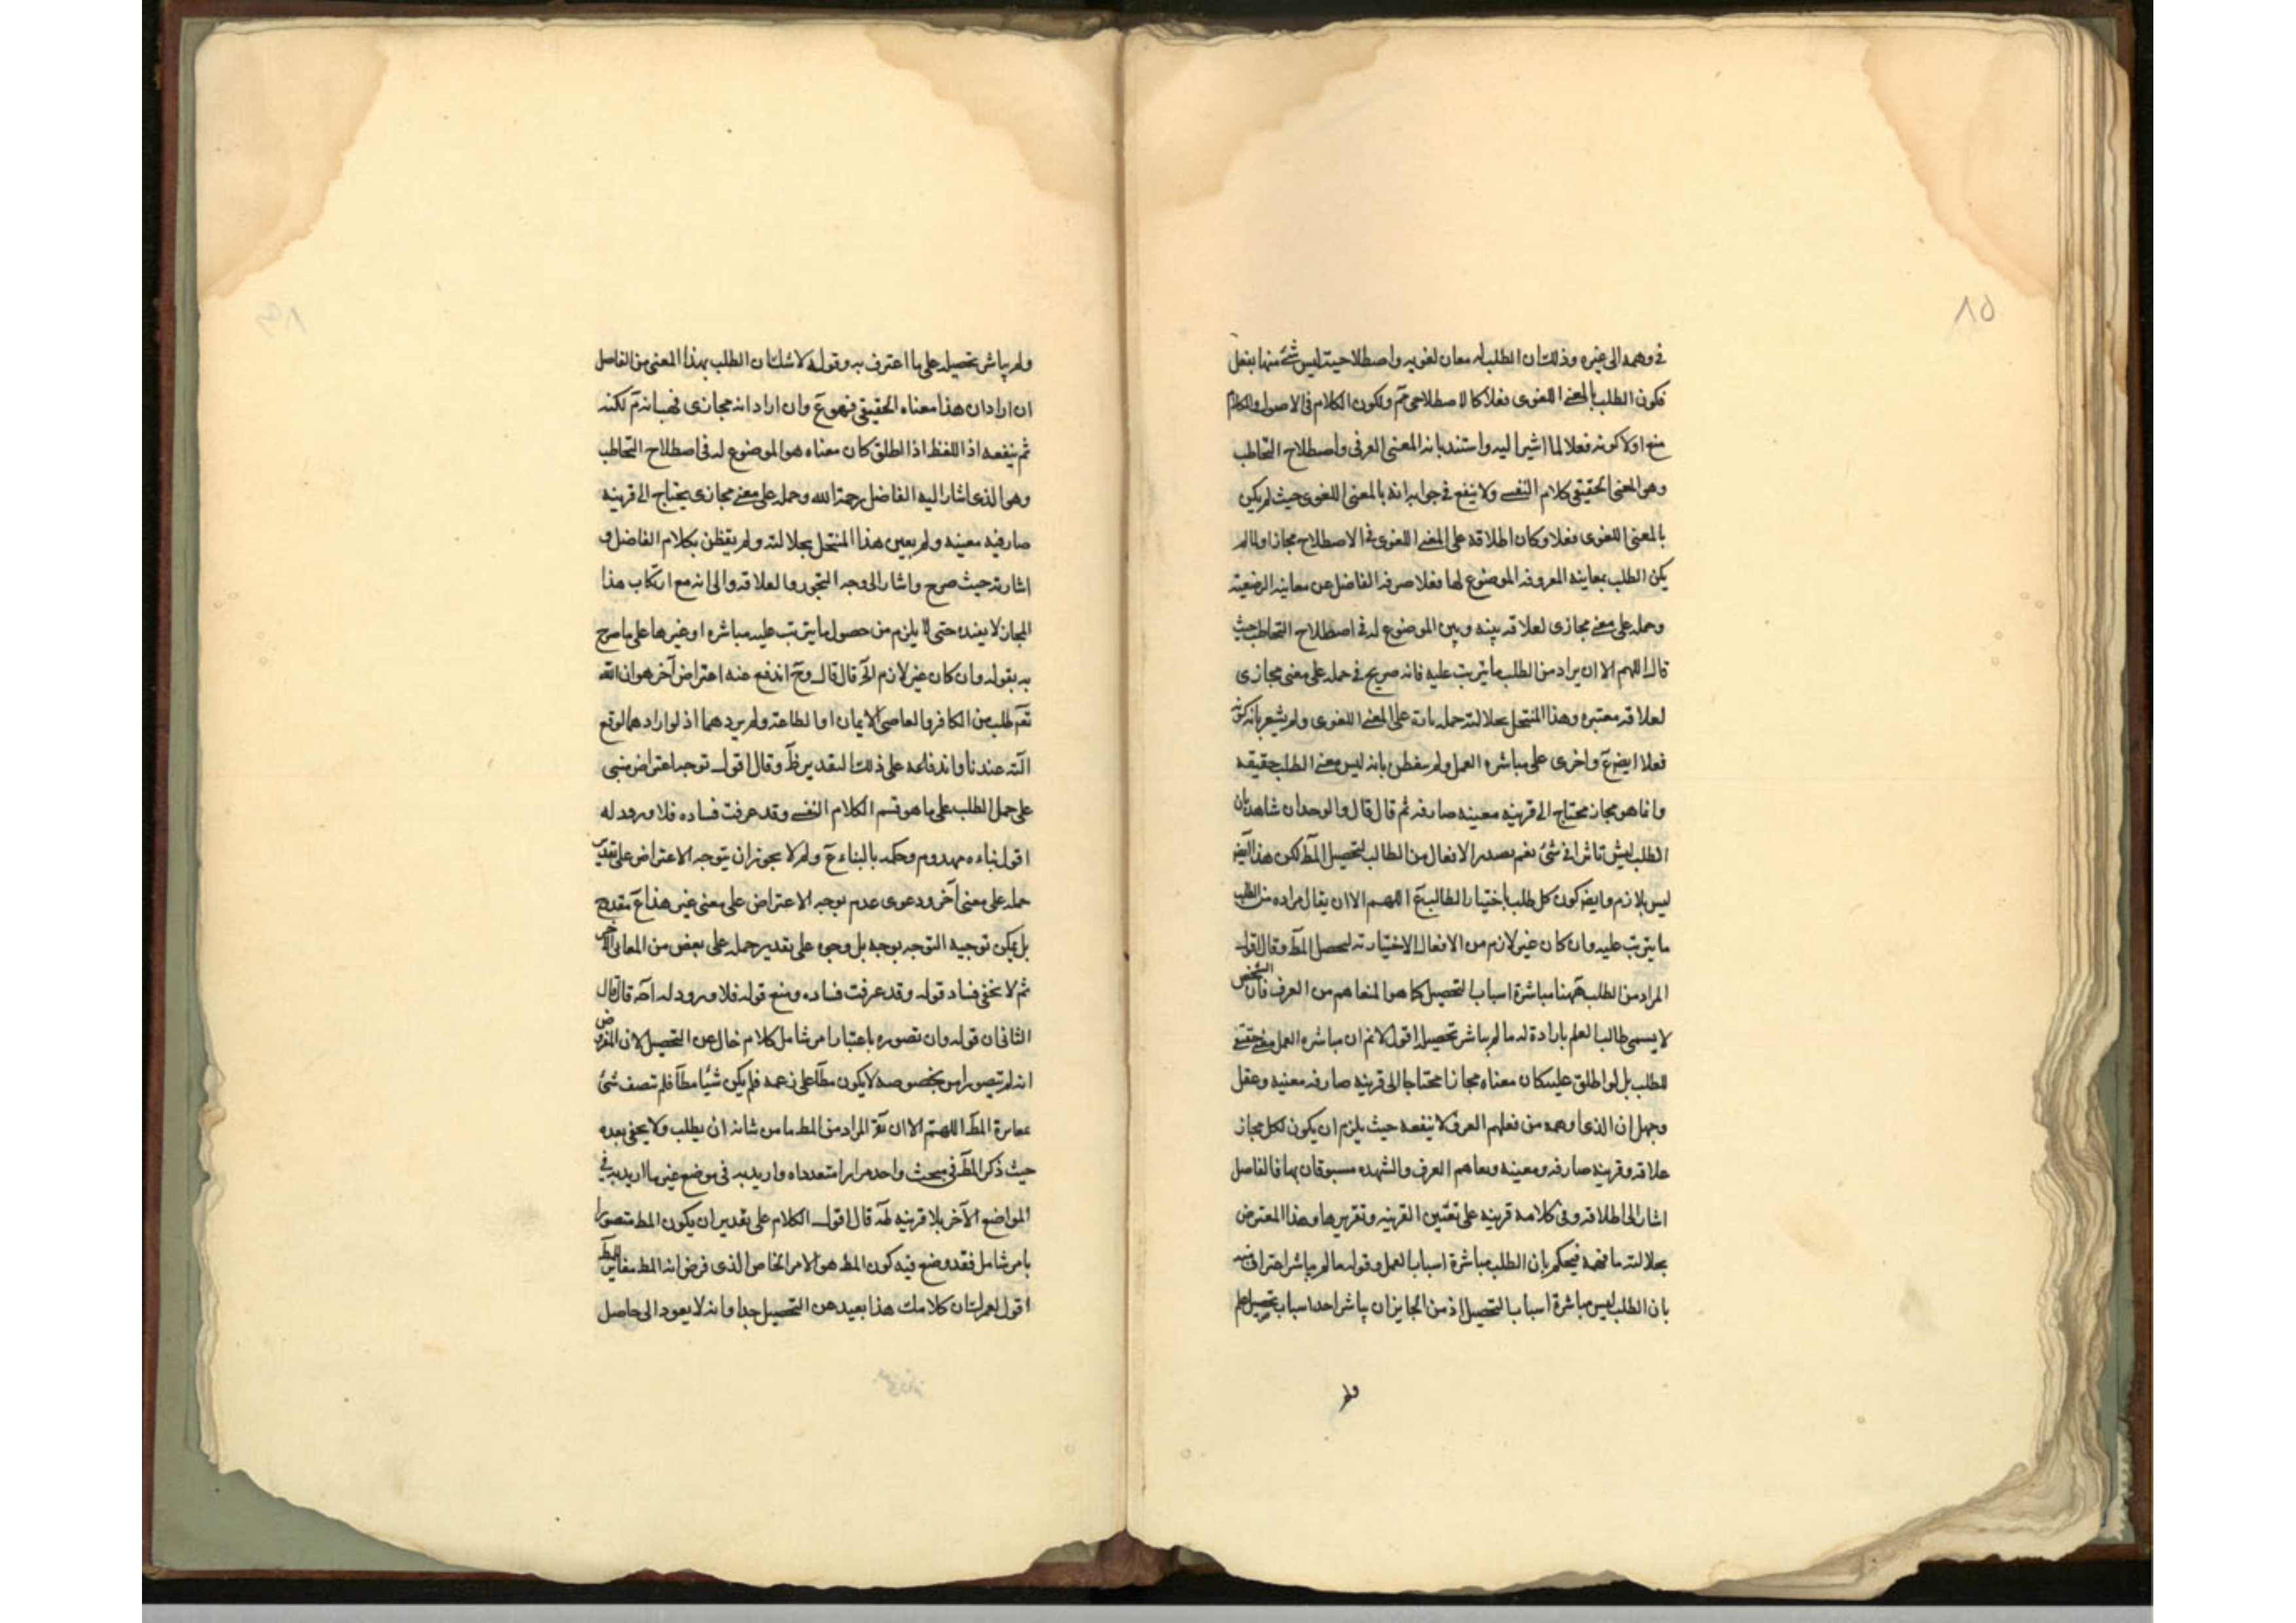 ٨٥
في وهمه الى غيره وذلك ان الطلب له معان لغويه واصطلاحية ليس شئ منها بفعل
فكون الطلب بالمعنى اللغوى فعلا كالاصطلاحى تم ولكون الكلام فى الاصول والكلام
منع اولا كونه فعلا لما اشير اليه واستند بانه المعنى العرفى واصطلاح التخاطب
وهو المعنى الحقيقى كلام النفسى ولا ينفع في جوابه انه بالمعنى اللغوى حيث لم يكن
بالمعنى اللغوى فعلا وكان اطلاقه على المعنى اللغوى في الاصطلاح مجازا ولما لم
يكن الطلب بمعانيه المعروفه الموضوع لها فعلا صرفه الفاضل عن معانيه الوضعية
وحمله على معنى مجازى لعلاقه بينه وبين الموضوع له في اصطلاح التخاطب حيث
قال اللهم الا ان يراد من الطلب ما يترتب عليه فانه صريح في حمله على معنى مجازى
لعلاقه معتبره وهذا المنتحل بجلالته حمله تارة على المعنى اللغوى ولم يشعر بانه كونه
فعلا ايضا مم واخرى على مباشره العمل ولم يتفطن بانه ليس معنى الطلب حقيقه
وانما هو مجاز محتاج الى قرينه معينه صارفه ثم قال قال والوجدان شاهد بان
الطلب ليس تاثرا في شئ نعم يصدر الافعال من الطالب لتحصيل المط لكن هذا ايض
ليس بلازم وايض كون كل طلب باختيار الطالب مم اللهم الا ان يقال مراده من الطلب
ما يترتب عليه وان كان غير لازم من الافعال الاختيارية لتحصيل المط وقال اقول
المراد من الطلب ههنا مباشرة اسباب التحصيل كما هو المتفاهم من العرف فان الشخص
لا يسمى طالب العلم بارادة له ما لم يباشر تحصيله اقول لانم ان مباشره العمل معنى حقيقى
للطلب بل لو اطلق عليه كان معناه مجازا محتاجا الى قرينه صارفه معينه وعقل
وجهل ان الذى اوهمه من فعلهم العرف لا ينفعه حيث يلزم ان يكون لكل مجاز
علاقه وقرينه صارفه ومعينه وتفاهم العرف والشهده مسبوقان بها فالفاضل
اشار الى اطلاقه وفى كلامه قرينه على تعيين القرينه وتقريرها وهذا المعترض
بجلالته ما فهمه فيحكم بان الطلب مباشرة اسباب العمل وقوله ما لم يباشر اعتراف منه
بان الطلب ليس مباشرة اسباب التحصيل اذ من الجايز ان يباشر احد اسباب تحصيل علم
ولم
ولم يباشر تحصيله على ما اعترف به وقوله لا شك ان الطلب بهذا المعنى من الفاضل
ان اراد ان هذا معناه الحقيقى فهو مم وان اراد انه مجازى فهب انه تم لكنه
ثم ينفعه اذ اللفظ اذا اطلق كان معناه هو الموضوع له فى اصطلاح التخاطب
وهو الذى اشار اليه الفاضل رحمة الله وحمله على معنى مجازى يحتاج الى قرينه
صارفيه معينه ولم يعين هذا المنتحل بجلالته ولم يتفطن بكلام الفاضل و
اشارته حيث صرح واشار الى وجه التجوز والعلاقه والى انه مع ارتكاب هذا
المجاز لا يفيده حتى لا يلزم من حصول ما يترتب عليه مباشره او غيرها على ما صرح
به بقوله وان كان غير لازم الخ قال قال وح اندفع عنه اعتراض آخر هو ان الله
تعم طلب من الكافر والعاصى الايمان او الطاعة ولم يردهما اذ لو ارادهما لوقع
البته عندنا واندفاعه على ذلك التقدير ظ وقال اقول توجه اعتراض مبنى
على حمل الطلب على ما هو قسم الكلام النفسى وقد عرفت فساده فلا ورود له
اقول بناءه مهدوم وحكمه بالبناء مم ولم لا يجوز ان يتوجه الاعتراض على تقدير
حمله على معنى آخر ودعوى عدم توجه الاعتراض على معنى غير هذا مم مقدوح
بل يمكن توجيه التوجه بوجه بل وجوه على تقدير حمله على بعض من المعانى الاخر
ثم لا يخفى فساد قوله وقد عرفت فساده ومنع قوله فلا ورود له اخه قال قال
الثانى ان قوله وان تصوره باعتبار امر شامل كلام خال عن التحصيل لان المفروض
انه لم يتصور امر بخصوصه لا يكون مطا على زعمه فلم يكن شيئا مطا فلم تتصف شئ
مغايرة المط اللهم الا ان يق المراد من المط ما من شانه ان يطلب ولا يخفى بعده
حيث ذكر المط فى مبحث واحد مرارا متعدداه واريد به فى موضع غير ما اريد به في
المواضع الآخر بلا قرينه له قال اقول الكلام على تقدير ان يكون المط متصورا
بامر شامل فقد وضع فيه كون المط هو الامر الخاص الذى فرض انه المط مغاير المط
اقول لعمرك ان كلامك هذا بعيد عن التحصيل جدا وانه لا يعود الى حاصل